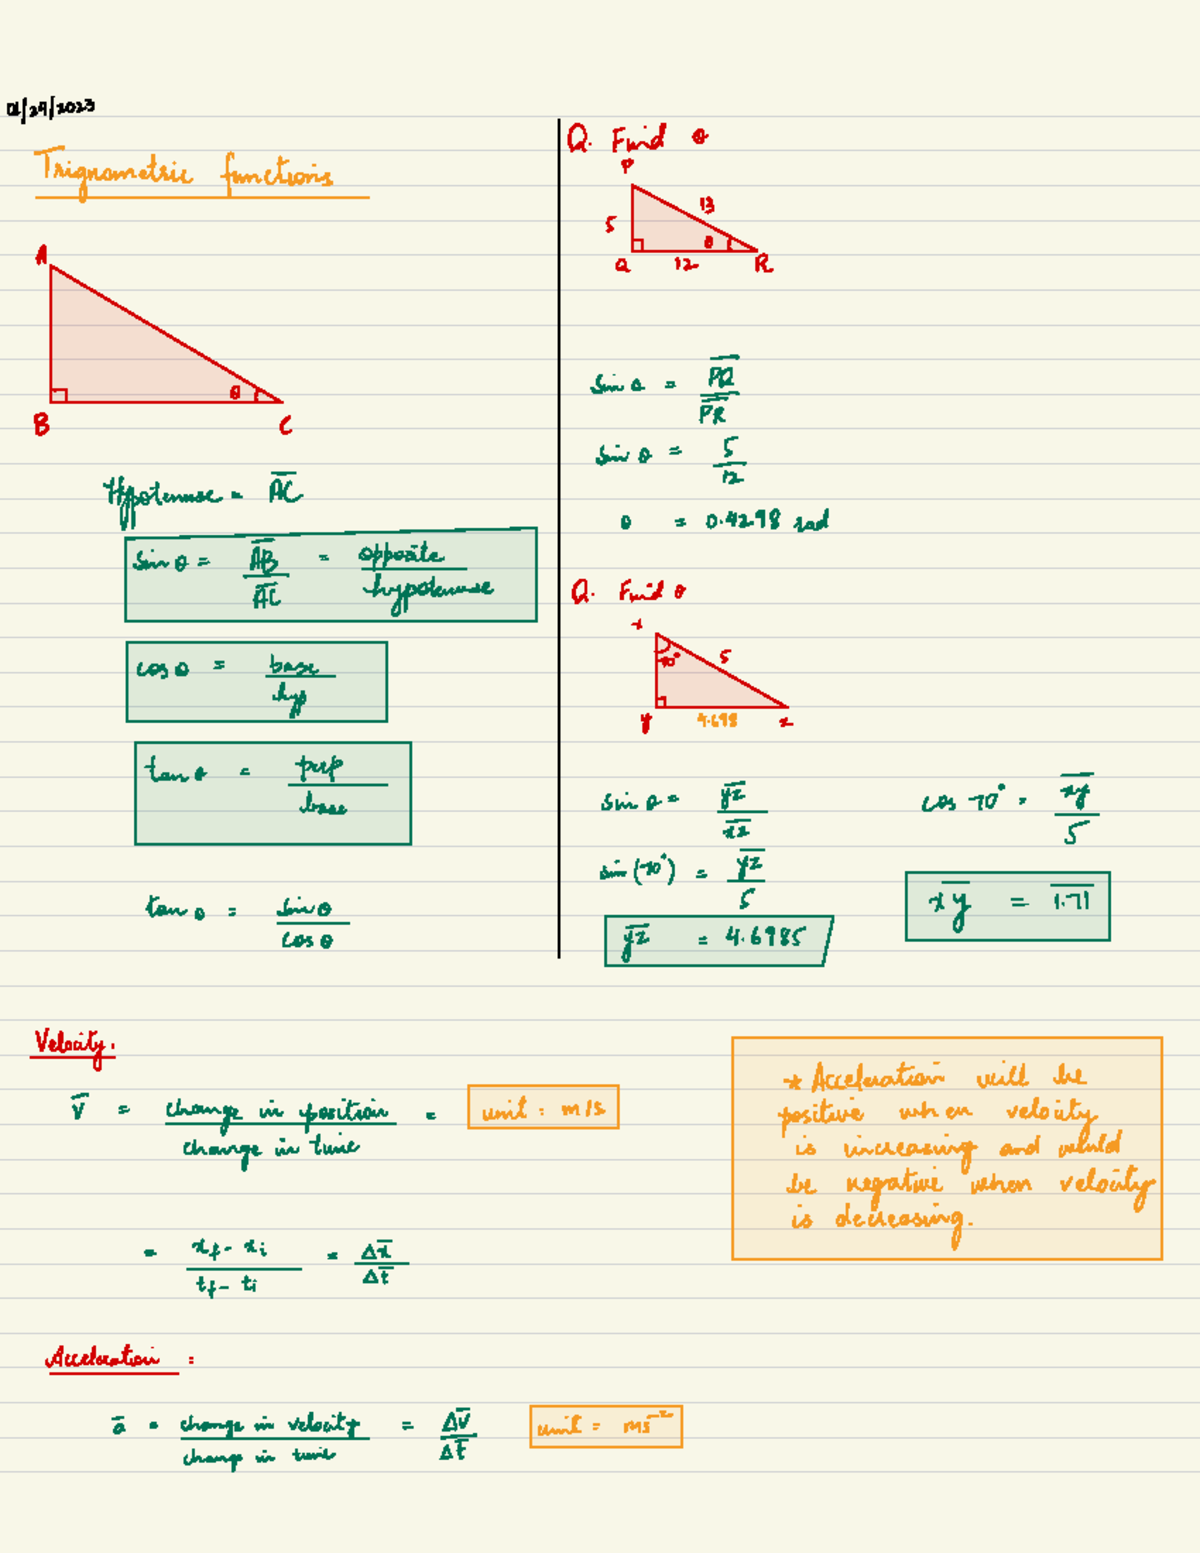 01/24/2023
Trignometric functions
A
θ
B
C
Hypotenuse = A̅C̅
sin θ = A̅B̅ / A̅C̅ = opposite / hypotenuse
cos θ = base / hyp
tan θ = perp / base
tan θ = sin θ / cos θ
Q. Find θ
P
13
5
θ
Q
12
R
sin θ = P̅Q̅ / P̅R̅
sin θ = 5 / 12
θ = 0.4298 rad
Q. Find θ
x
70°
5
y
4.698
z
sin θ = y̅z̅ / x̅z̅
sin (70°) = y̅z̅ / 5
y̅z̅ = 4.6985
cos 70° = x̅y̅ / 5
x̅y̅ = 1.71
Velocity.
v̅ = change in position / change in time =
unit = m/s
= xf - xi / tf - ti = Δx̅ / Δt̅
* Acceleration will be
positive when velocity
is increasing and would
be negative when velocity
is decreasing.
Acceleration :
a̅ = change in velocity / change in time = Δv̅ / Δt̅
unit = ms⁻²